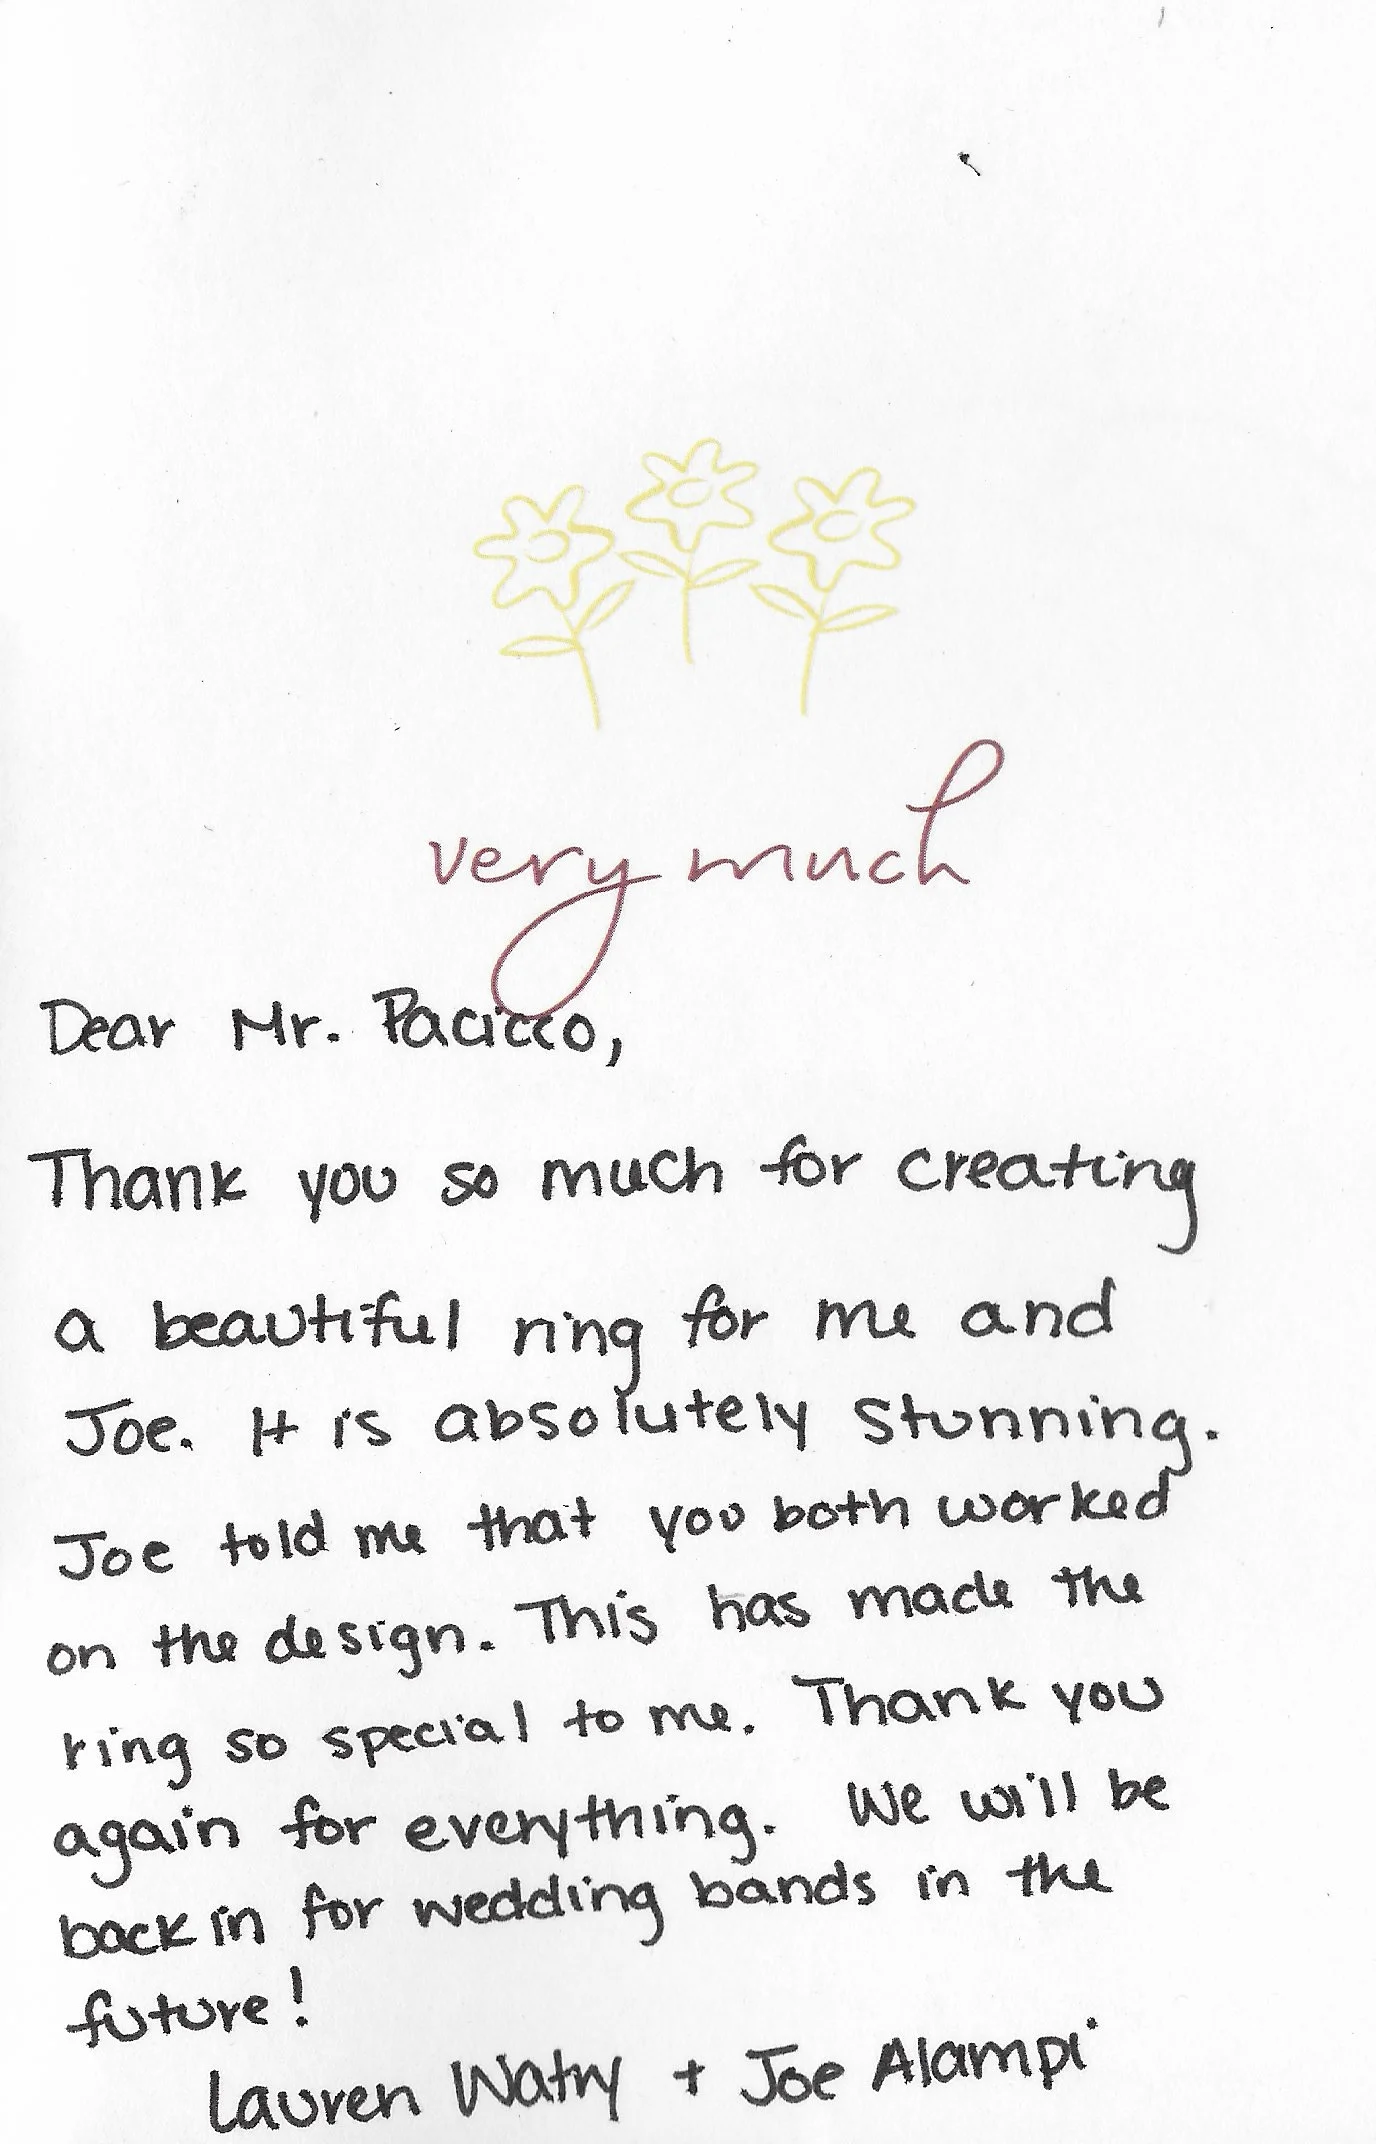 very much
Dear Mr. Pacicco,
Thank you so much for creating
a beautiful ring for me and
Joe. It is absolutely stunning.
Joe told me that you both worked
on the design. This has made the
ring so special to me. Thank you
again for everything. We will be
back in for wedding bands in the
future!
Lauren Watry + Joe Alampi